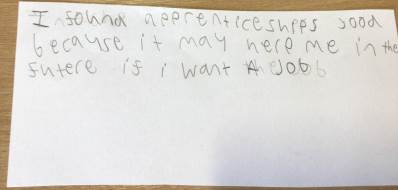 I found apprenticeshipps good
because it may help me in the
futere if i want A JOb